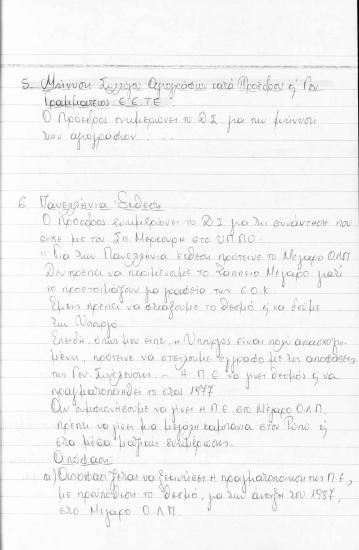 5. Μήνυση Συλλόγου Αγιογράφων κατά Προέδρου & Γεν.
Γραμματέως Ε.Ε.Τ.Ε.
Ο Πρόεδρος ενημερώνει το Δ.Σ. για την μήνυση
των αγιογράφων. . . .
6. Πανελλήνια Έκθεση
Ο Πρόεδρος ενημερώνει το Δ.Σ για την συνάντηση που
είχε με την Μερκούρη στο ΥΠ.ΠΟ.
"Για την Πανελλήνια Έκθεση πρότεινε το Μέγαρο ΟΛΠ
Δεν πρέπει να περιμένουμε το Ζάππειο Μέγαρο γιατί
το προετοιμάζουν για γραφεία της Ε.Ο.Κ.
Εμείς πρέπει να το θεσμό & να δούμε
την Υπουργό.
Επειδή, όπως μου είπε, η Υπουργός είναι πολύ απασχολη-
μένη, πρότεινε να στείλουμε έγγραφο με τις αποφάσεις
της Γεν. Συνέλευσης. - Η Π.Ε να γίνει θεσμός & να
πραγματοποιηθεί το έτος 1977
Αν συμφωνήσουμε να γίνει η Π.Ε. στο Μέγαρο Ο.Λ.Π.
πρέπει να γίνει μια μεγάλη καμπάνια στον &
στα μέσα μαζικής ενημέρωσης.
Απόφαση:
α) Αποφασίζεται να ξεκινήσει η πραγματοποίηση της Π.Ε.,
με προϋπόθεση το θεσμό, για την άνοιξη του 1987,
στο Μέγαρο Ο.Λ.Π.